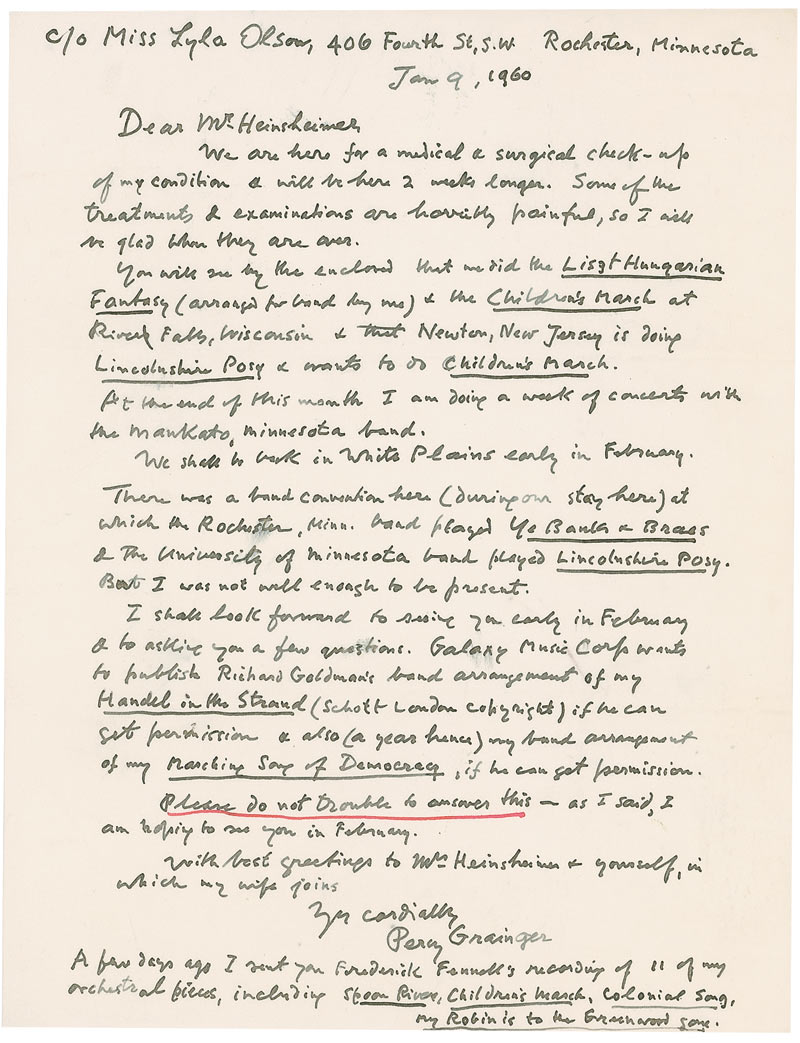 c/o Miss Lyla Olson, 406 Fourth St, S.W. Rochester, Minnesota
Jan 9, 1960
Dear Mr. Heinsheimer
We are here for a medical & surgical check-up
of my condition & will be here 2 weeks longer. Some of the
treatments & examinations are horribly painful, so I will
be glad when they are over.
You will see by the enclosed that we did the Liszt Hungarian
Fantasy (arranged for band by me) & the Children's March at
River Falls, Wisconsin & that Newton, New Jersey is doing
Lincolnshire Posy & wants to do Children's March.
At the end of this month I am doing a week of concerts with
the Mankato, Minnesota band.
We shall be back in White Plains early in February.
There was a band convention here (during our stay here) at
which the Rochester, Minn. band played Ye Banks & Braes
& the University of Minnesota band played Lincolnshire Posy.
But I was not well enough to be present.
I shall look forward to seeing you early in February
& to asking you a few questions. Galaxy Music Corp wants
to publish Richard Goldman's band arrangement of my
Handel in the Strand (Schott London copyright) if he can
get permission & also (a year hence) my band arrangement
of my Marching Song of Democracy, if he can get permission.
Please do not trouble to answer this — as I said, I
am hoping to see you in February.
With best greetings to Mrs Heinsheimer & yourself, in
which my wife joins
Yrs cordially
Percy Grainger
A few days ago I sent you Frederick Fennell's recording of 11 of my
orchestral pieces, including Spoon River, Children's March, Colonial Song,
my Robin is to the Greenwood gone.